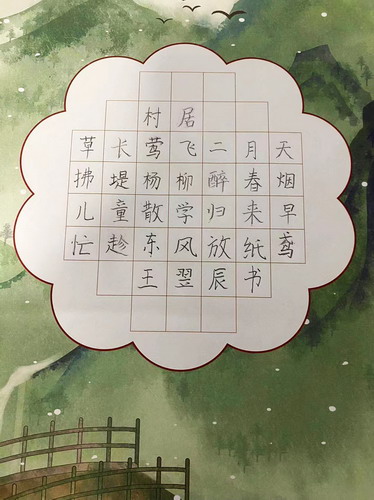 村居
草长莺飞二月天
拂堤杨柳醉春烟
儿童散学归来早
忙趁东风放纸鸢
王翌辰书